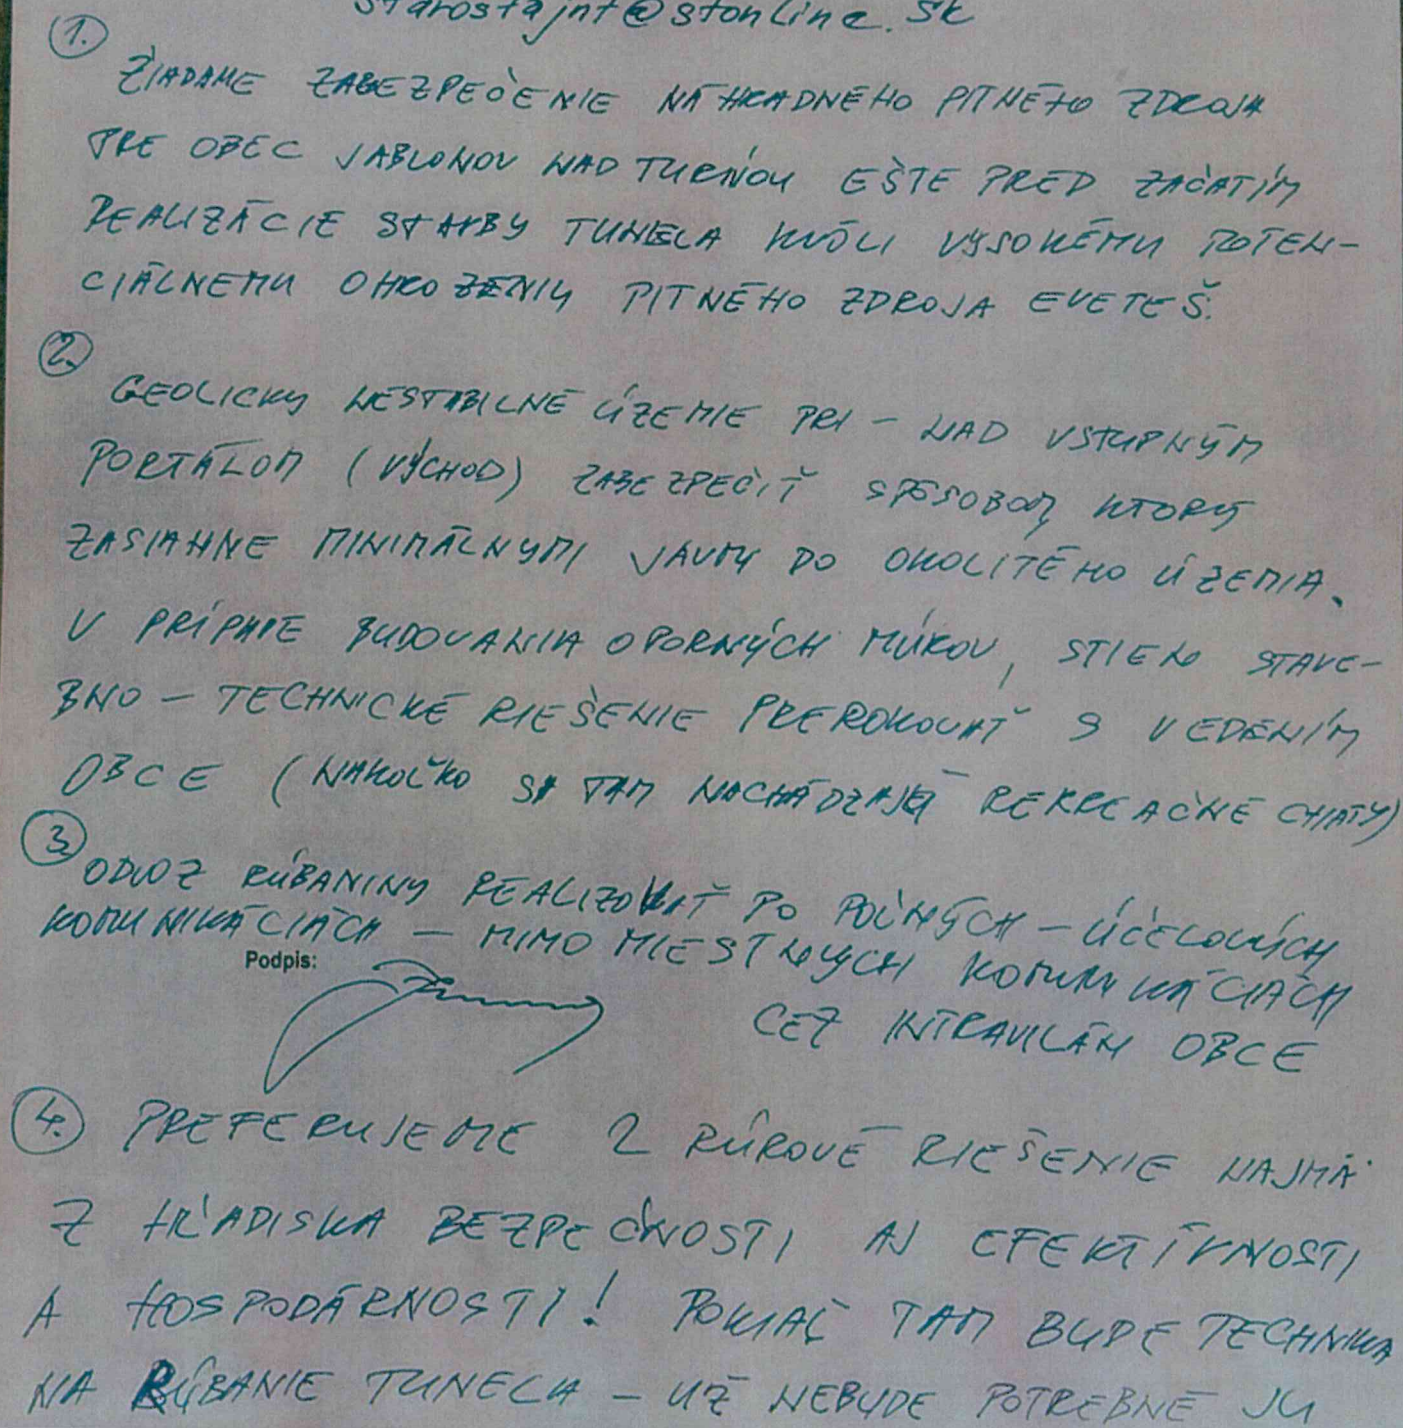 starostajnt@stonline.sk
1.
ŽIADAME ZABEZPEČENIE NÁHRADNÉHO PITNÉHO ZDROJA
PRE OBEC JABLONOV NAD TURŇOU EŠTE PRED ZAČATÍM
REALIZÁCIE STAVBY TUNELA KVÔLI VYSOKÉMU POTEN-
CIÁLNEMU OHROZENIU PITNÉHO ZDROJA EVETEŠ.
2.
GEOLICKY NESTABILNÉ ÚZEMIE PRI - NAD VSTUPNÝM
PORTÁLOM (VÝCHOD) ZABEZPEČIŤ SPÔSOBOM, KTORÝ
ZASIAHNE MINIMÁLNYMI VPLYVMI DO OKOLITÉHO ÚZEMIA.
V PRÍPADE BUDOVANIA OPORNÝCH MÚROV, STIEN STAVE-
BNO - TECHNICKÉ RIEŠENIE PREROKOVAŤ S VEDENÍM
OBCE (NAKOĽKO SA TAM NACHÁDZAJÚ REKREAČNÉ CHATY)
3.
ODVOZ RÚBANINY REALIZOVAŤ PO POĽNÝCH - ÚČELOVÝCH
KOMUNIKÁCIÁCH - MIMO MIESTNYCH KOMUNIKÁCIÁCH
Podpis:
CEZ INTRAVILÁN OBCE
4. PREFERUJEME 2 RÚROVÉ RIEŠENIE NAJMÄ
Z HĽADISKA BEZPEČNOSTI AJ EFEKTÍVNOSTI
A HOSPODÁRNOSTI! POKIAĽ TAM BUDE TECHNIKA
NA RÚBANIE TUNELA - UŽ NEBUDE POTREBNÉ JU